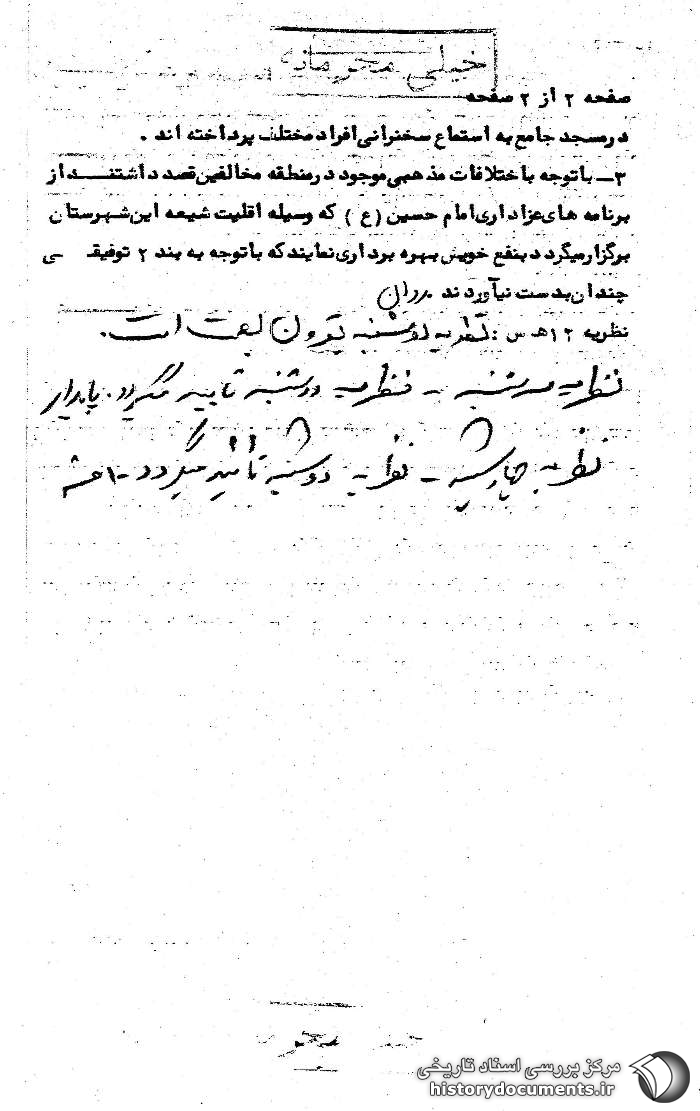 خیلی محرمانه
صفحه ۲ از ۲ صفحه
در مسجد جامع به استماع سخنرانی افراد مختلف پرداخته اند .
۳ــ باتوجه باختلافات مذهبی موجود در منطقه مخالفین قصد داشتنــــد از
برنامه های عزاداری امام حسین (ع) که وسیله اقلیت شیعه این شهرستان
برگزار میگردد بنفع خویش بهره برداری نمایند که باتوجه به بند ۲ توفیقـــی
چندان بدست نیآوردند . روان
نظریه ۱۲ هـ س : نظریه دوشنبه است .
نظریه سه شنبه ــ نظریه دوشنبه تایید میگردد . پایدار
نظریه چهارشنبه ــ نظریه دوشنبه تائید میگردد
مرکز بررسی اسناد تاریخی
historydocuments.ir